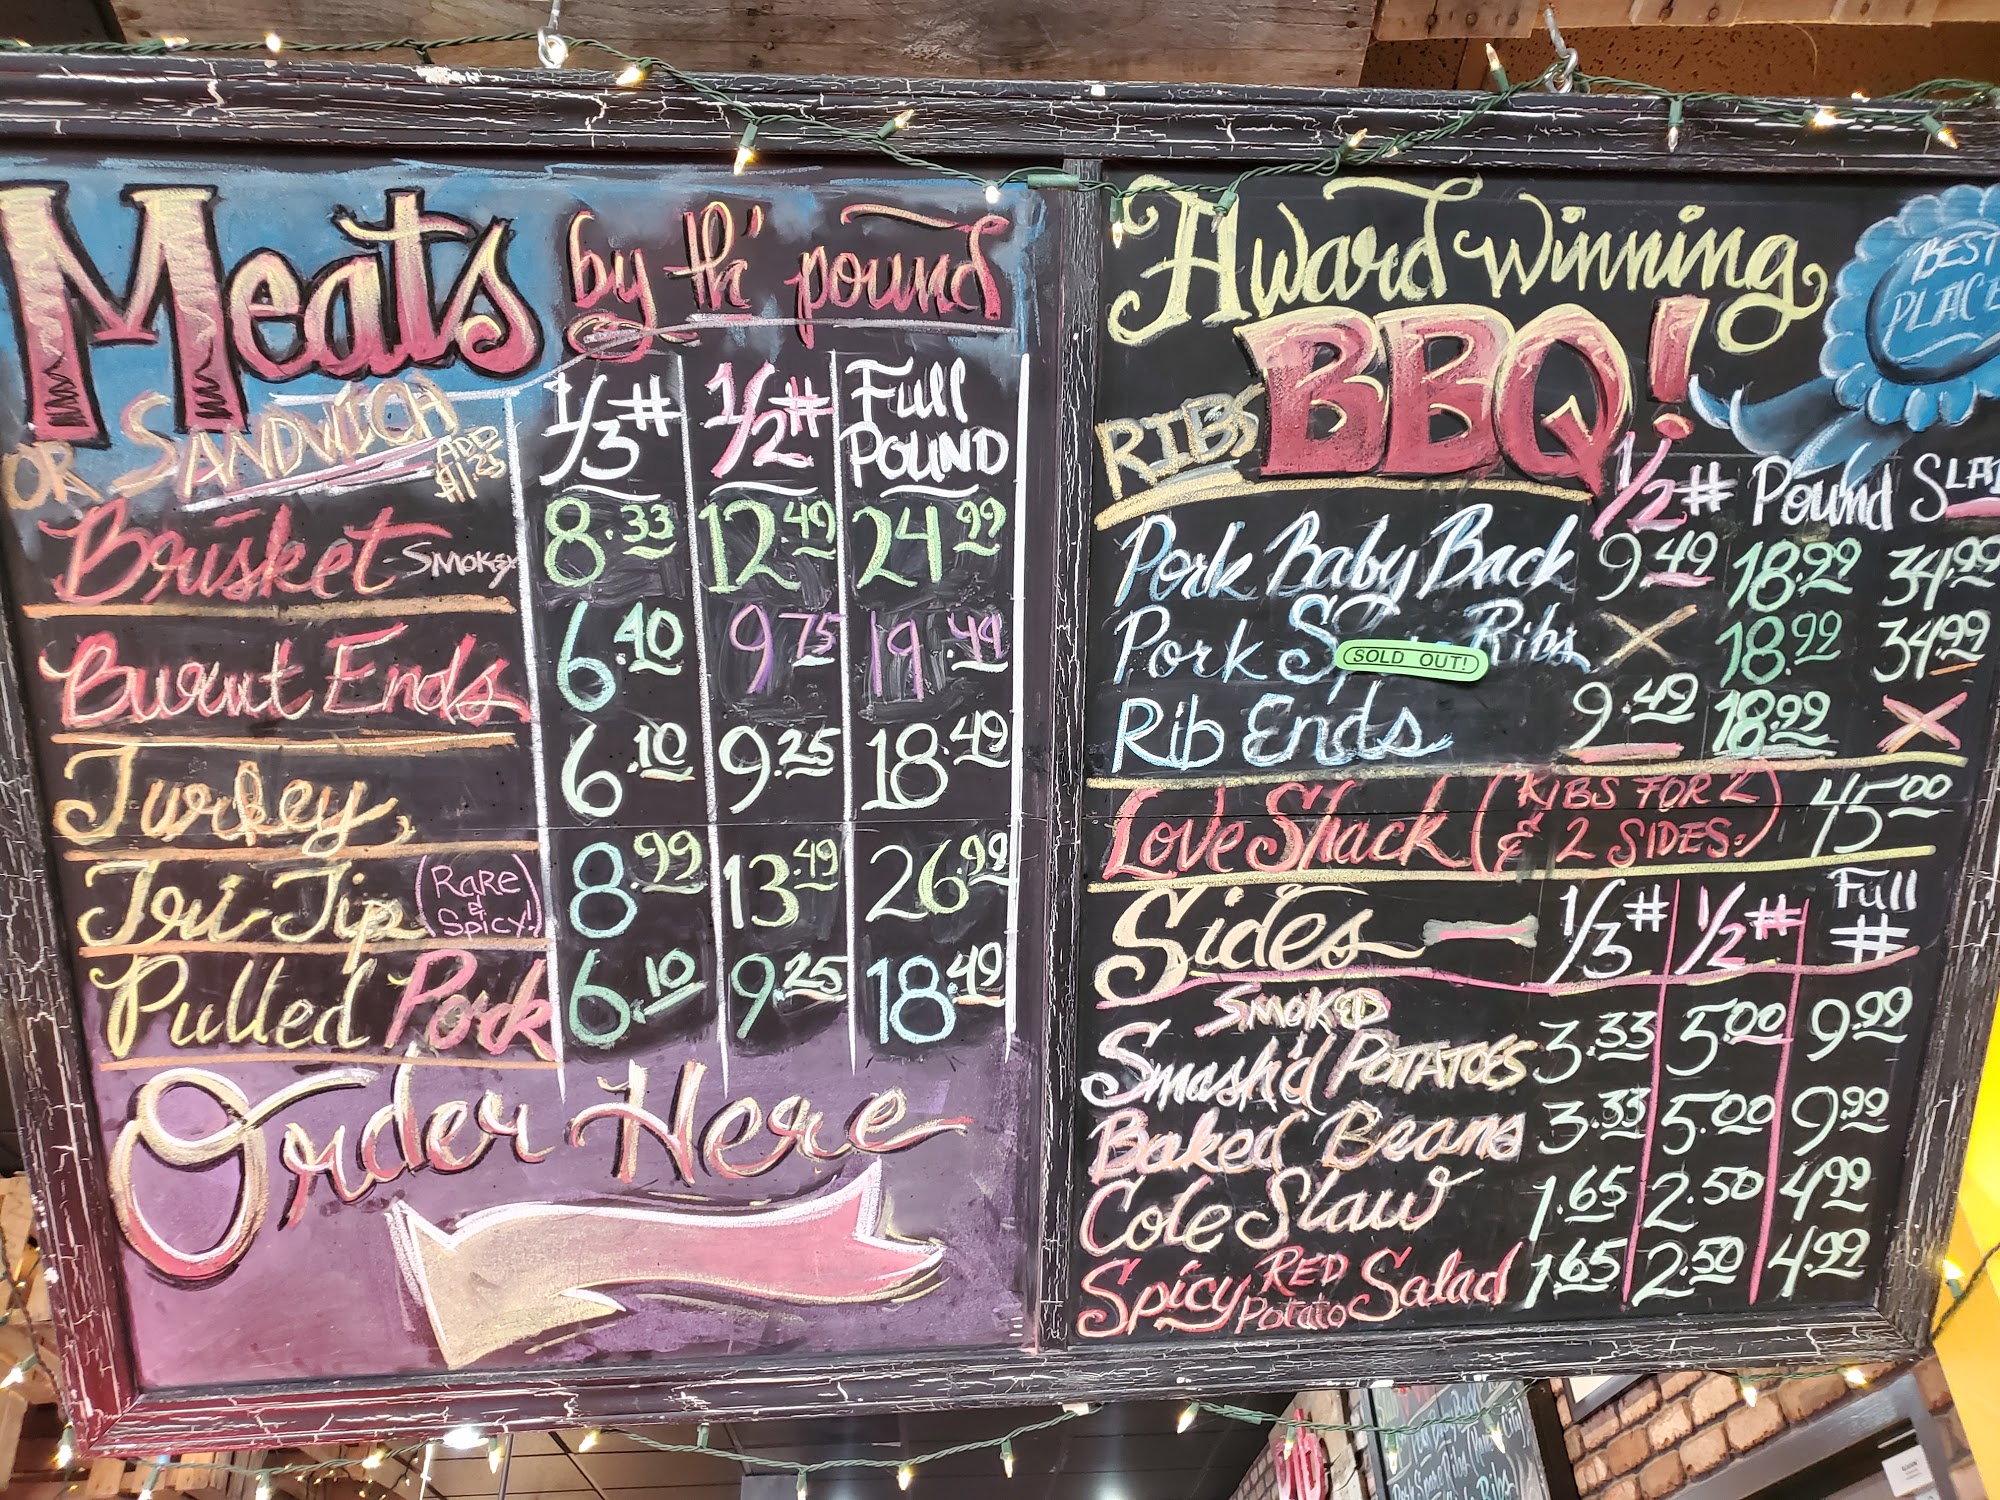 Meats by th' pound
OR SANDWICH ADD $1.25
1/3# 1/2# Full POUND
Brisket SMOKEY 8.33 12.49 24.99
Burnt Ends 6.40 9.75 19.49
Turkey 6.10 9.25 18.49
Tri Tip (RARE & SPICY!) 8.99 13.49 26.99
Pulled Pork 6.10 9.25 18.49
Order Here
Award Winning
BBQ!
BEST
PLACE
RIBS 1/2# Pound
Pork Baby Back 9.49 18.99 34.99
Pork Ribs X 18.99 34.99
SOLD OUT!
Rib Ends 9.49 18.99 X
Love Shack (RIBS FOR 2 & 2 SIDES.) 45.00
Sides — 1/3# 1/2# Full #
SMOKED
Smash'd POTATOES 3.33 5.00 9.99
Baked Beans 3.33 5.00 9.99
Cole Slaw 1.65 2.50 4.99
Spicy RED Potato Salad 1.65 2.50 4.99